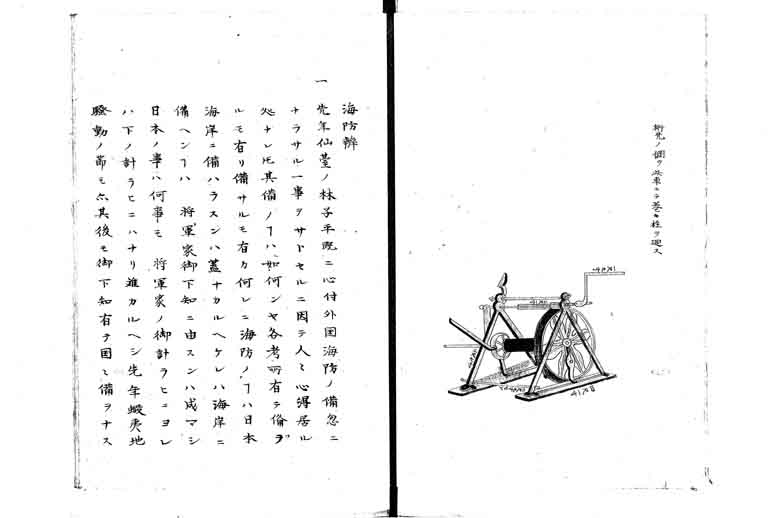 ノ圖ヲ此車ニテ巻キ柱ヲ廻ス
海防辨
一 先年仙臺ノ林子平既ニ心付外国海防ノ備忽ニ
ナラサル一事ヲサトセルニ因テ人々心得居ル
処ナレ𪜈其備ノヿハ如何ンヤ各考所有テ備ヲ
ルモ有リ備サルモ有カ何レニ海防ノヿハ日本
海岸ニ備ハラスンハ蓋ナカルヘケレハ海岸ニ
備ヘンヿハ 将軍家御下知ニ由スンハ成マシ
日本ノ事ハ何事モ 将軍家ノ御計ラヒニヨレ
ハ下ノ計ラヒニハナリ難カルヘシ先年蝦夷地
騒動ノ節モ其後モ御下知有テ国々備ヲナス